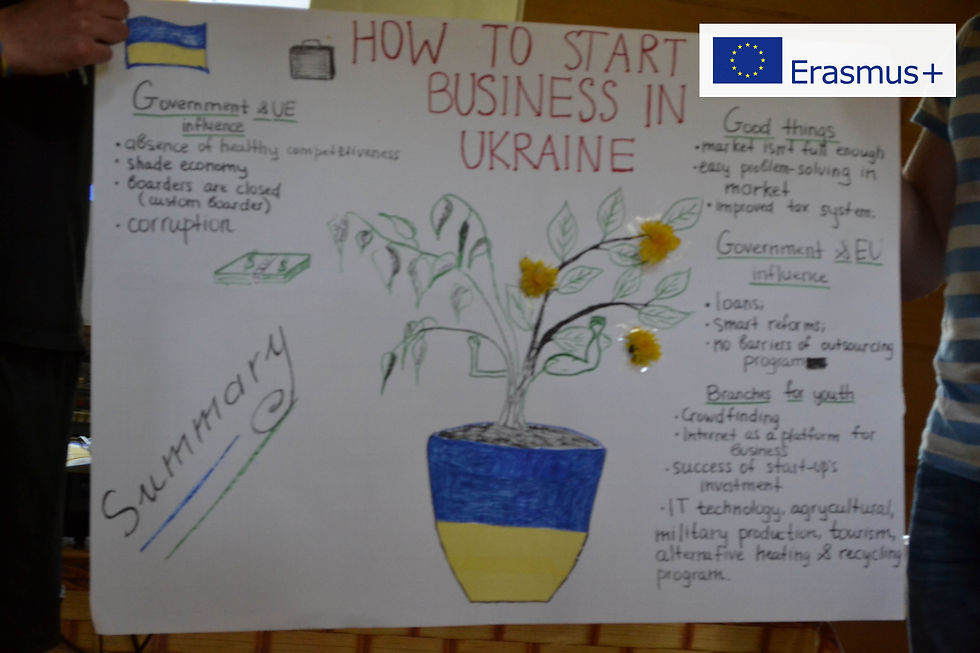 HOW TO START
BUSINESS IN
UKRAINE
Erasmus+
Government & UE
influence
• absence of healthy competitiveness
• shade economy
• Boarders are closed
(custom Boarder)
• corruption
$ $
Summary
Good things
• market isn't full enough
• easy problem-solving in
market
• improved tax system;
Government & EU
influence
• loans;
• smart reforms;
• no Barriers of outsourcing
program
Branches for youth
• Crowdfinding
• Internet as a platform for
Business
• success of start-up's
investment
• IT technology, agrycultural,
military production, tourism,
alternative heating & recycling
program.